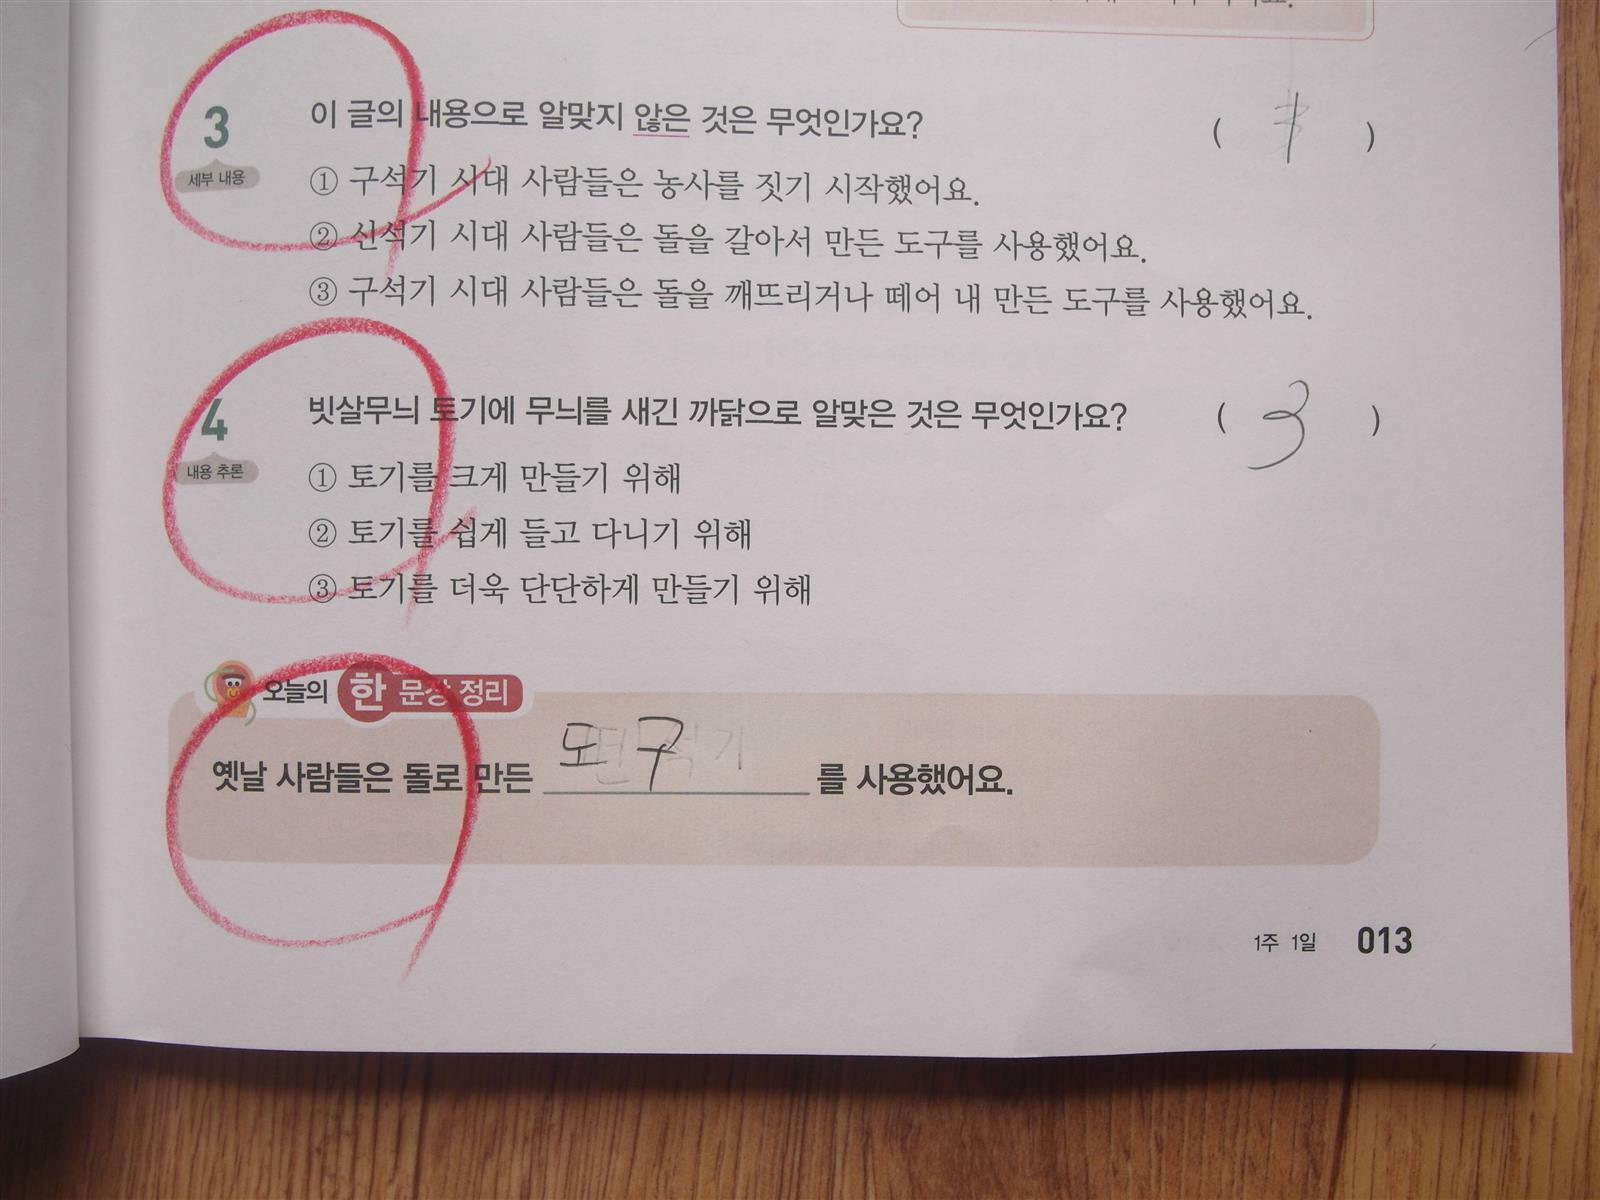 3 이 글의 내용으로 알맞지 않은 것은 무엇인가요? ( 1 )
세부 내용
① 구석기 시대 사람들은 농사를 짓기 시작했어요.
② 신석기 시대 사람들은 돌을 갈아서 만든 도구를 사용했어요.
③ 구석기 시대 사람들은 돌을 깨뜨리거나 떼어 내 만든 도구를 사용했어요.
4 빗살무늬 토기에 무늬를 새긴 까닭으로 알맞은 것은 무엇인가요? ( 3 )
내용 추론
① 토기를 크게 만들기 위해
② 토기를 쉽게 들고 다니기 위해
③ 토기를 더욱 단단하게 만들기 위해
오늘의 한 문장 정리
옛날 사람들은 돌로 만든 도구 를 사용했어요.
1주 1일 013